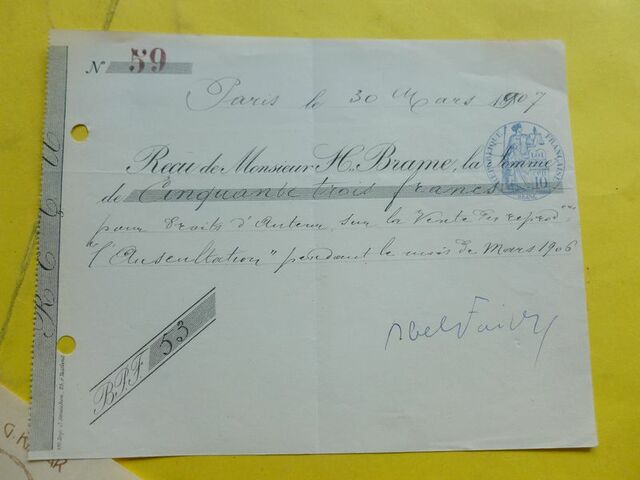 N 59
Paris le 30 Mars 1907
Reçu de Monsieur H. Brame, la Somme
de Cinquante trois francs
pour Droits d'Auteur sur la Vente des reprod ons
de l'Auscultation" pendant le mois de Mars 1906
Abel Faivre
B.P.F 53
REÇU
RÉPUBLIQUE FRANÇAISE
10